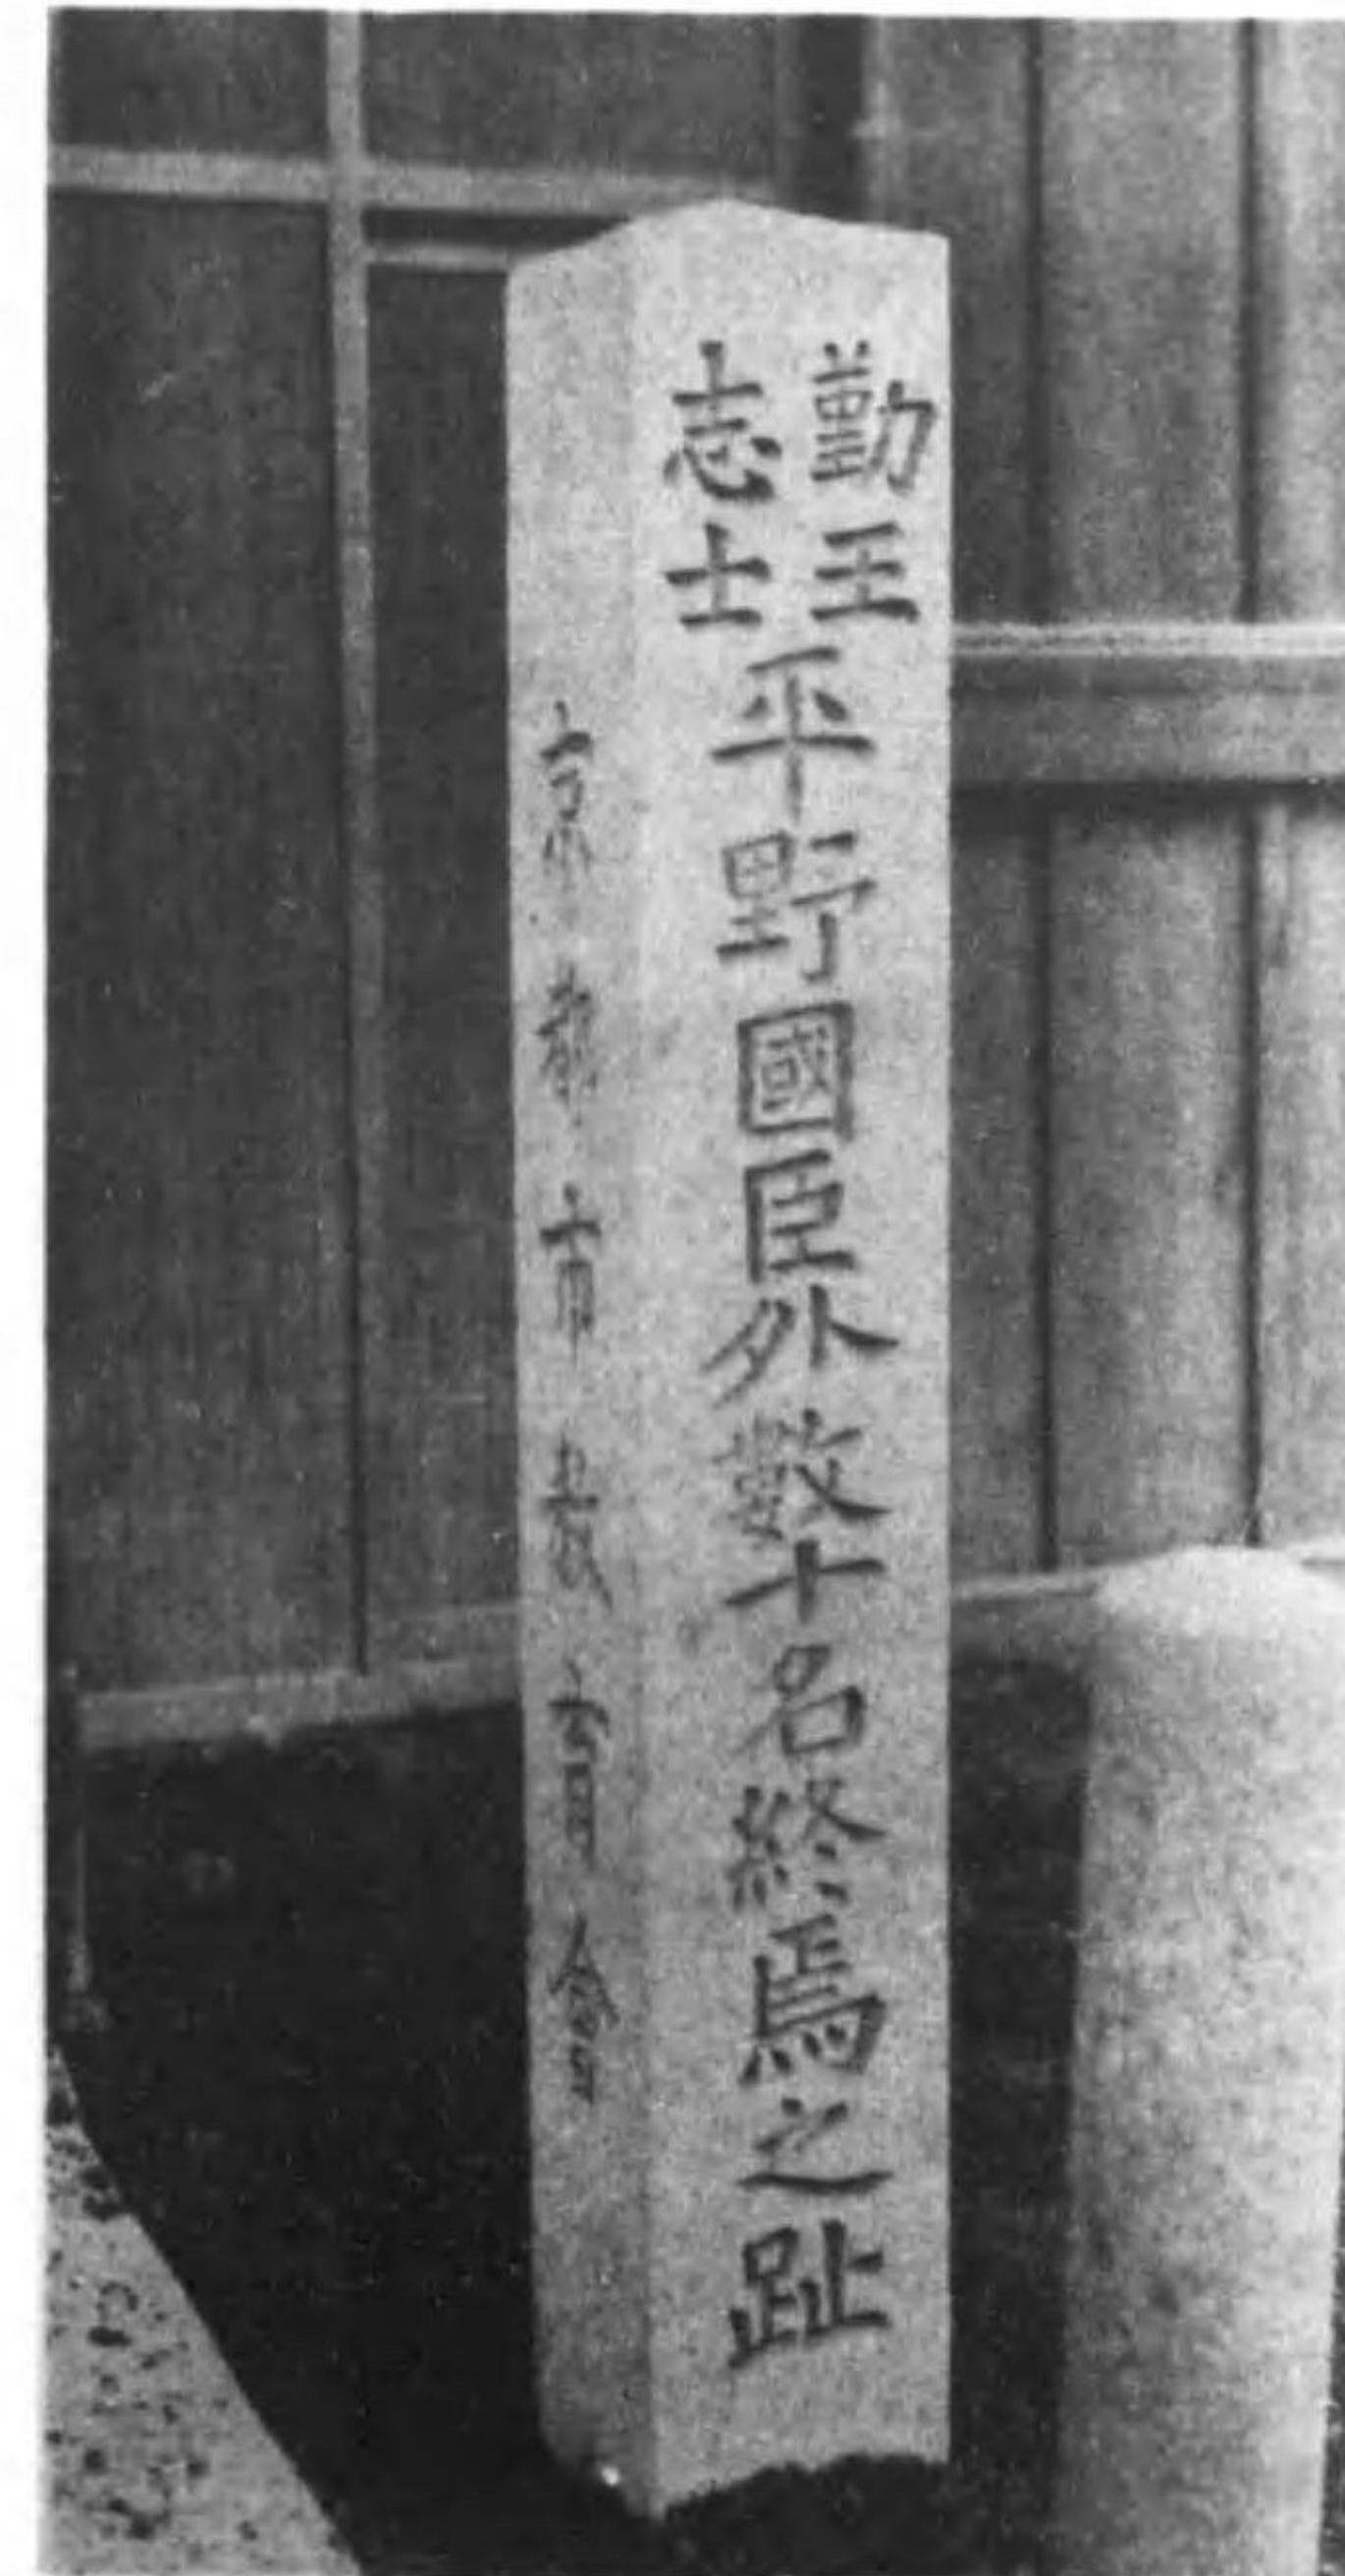 勤王
志士
平野國臣外數十名終焉之趾
京都市教育會